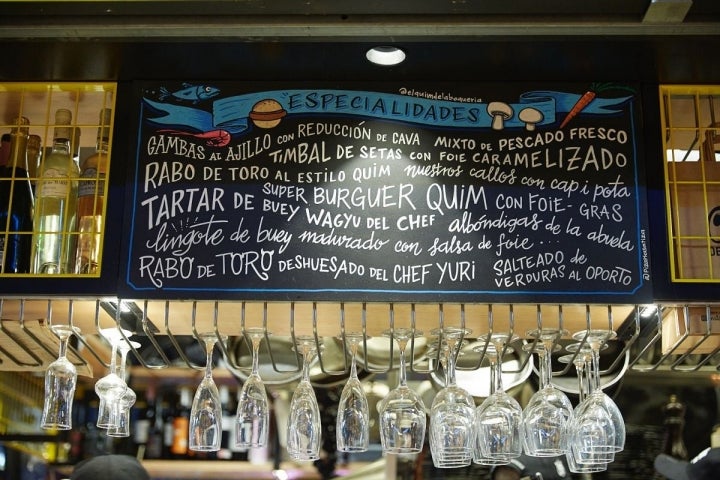 @elquimdelaboqueria
ESPECIALIDADES
GAMBAS AL AJILLO CON REDUCCIÓN DE CAVA MIXTO DE PESCADO FRESCO
TIMBAL DE SETAS CON FOIE CARAMELIZADO
RABO DE TORO AL ESTILO QUIM nuestros callos con cap i pota
SUPER BURGUER QUIM CON FOIE-GRAS
TARTAR DE BUEY WAGYU DEL CHEF albóndigas de la abuela
lingote de buey madurado con salsa de foie...
RABO DE TORO DESHUESADO DEL CHEF YURI SALTEADO DE VERDURAS AL OPORTO